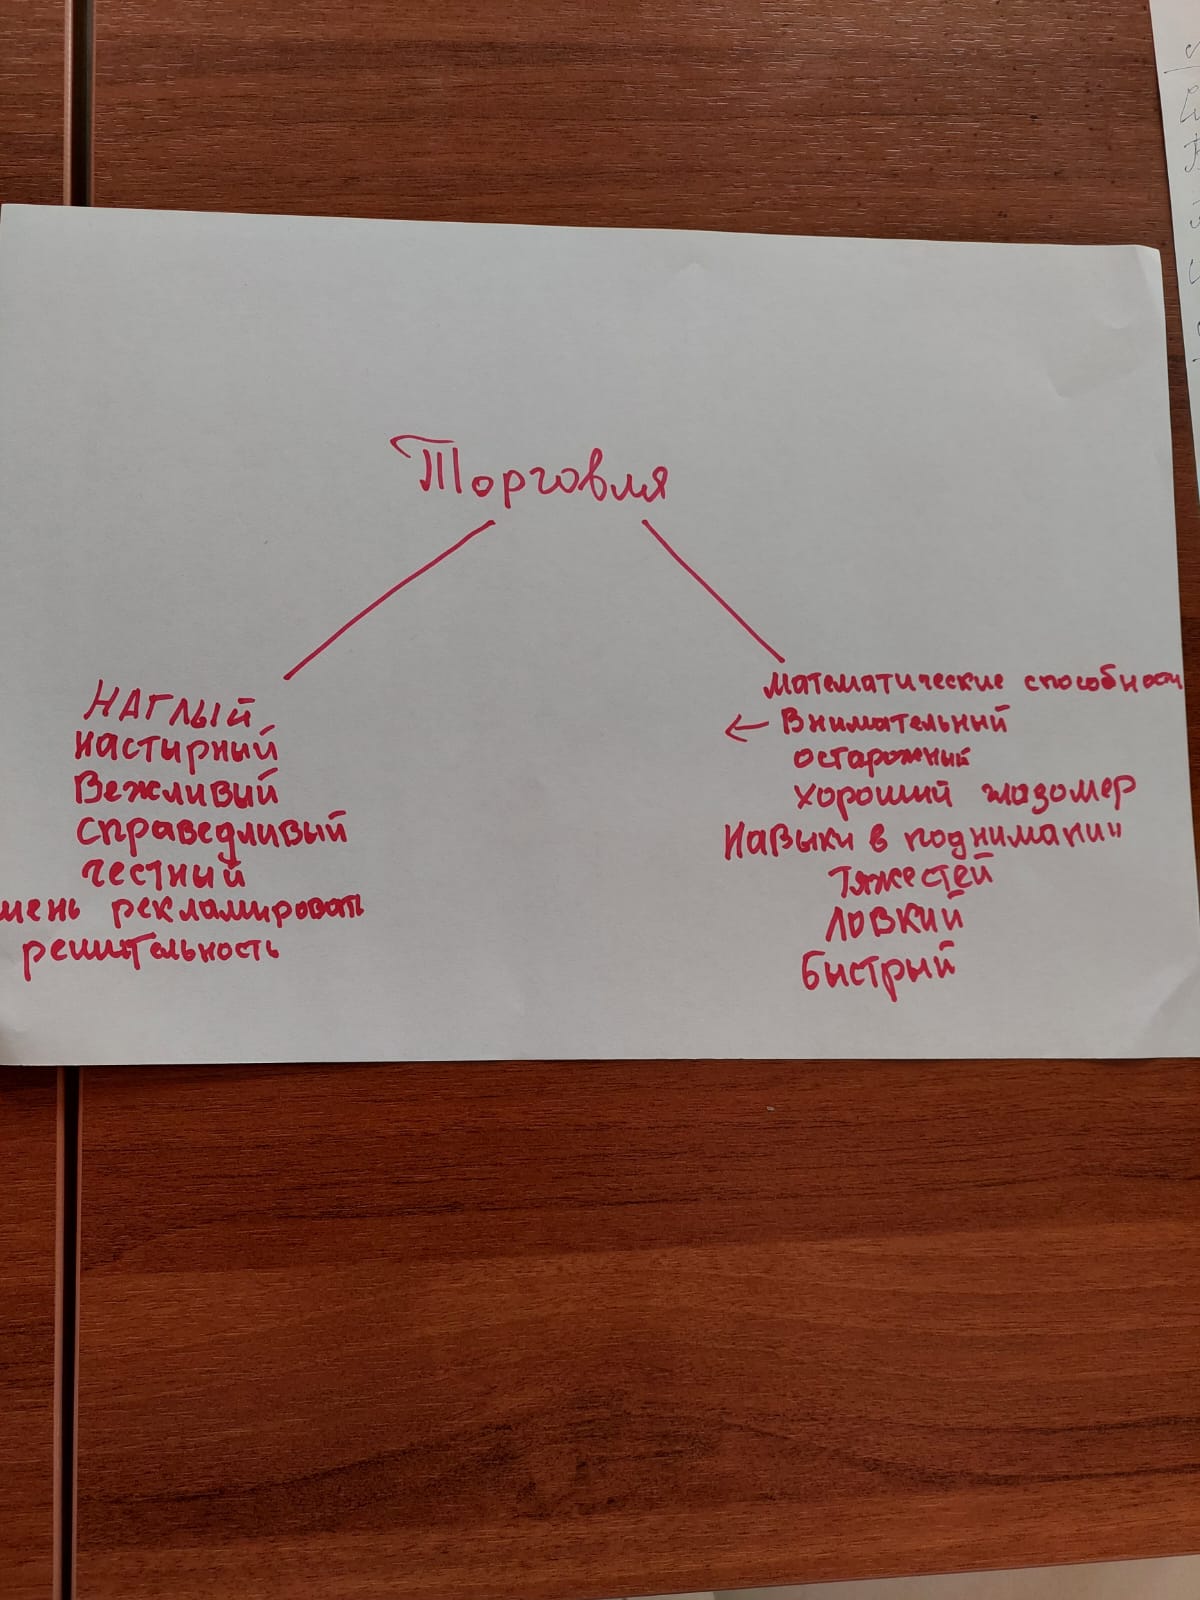 Торговля
НАГЛЫЙ
настирный
Вежливий
справедливый
честный
мень рекламировать
решительность
математические способности
← Внимательный
остарожный
хороший глазомер
Навыки в поднимании
тяжестей
ловкий
быстрый